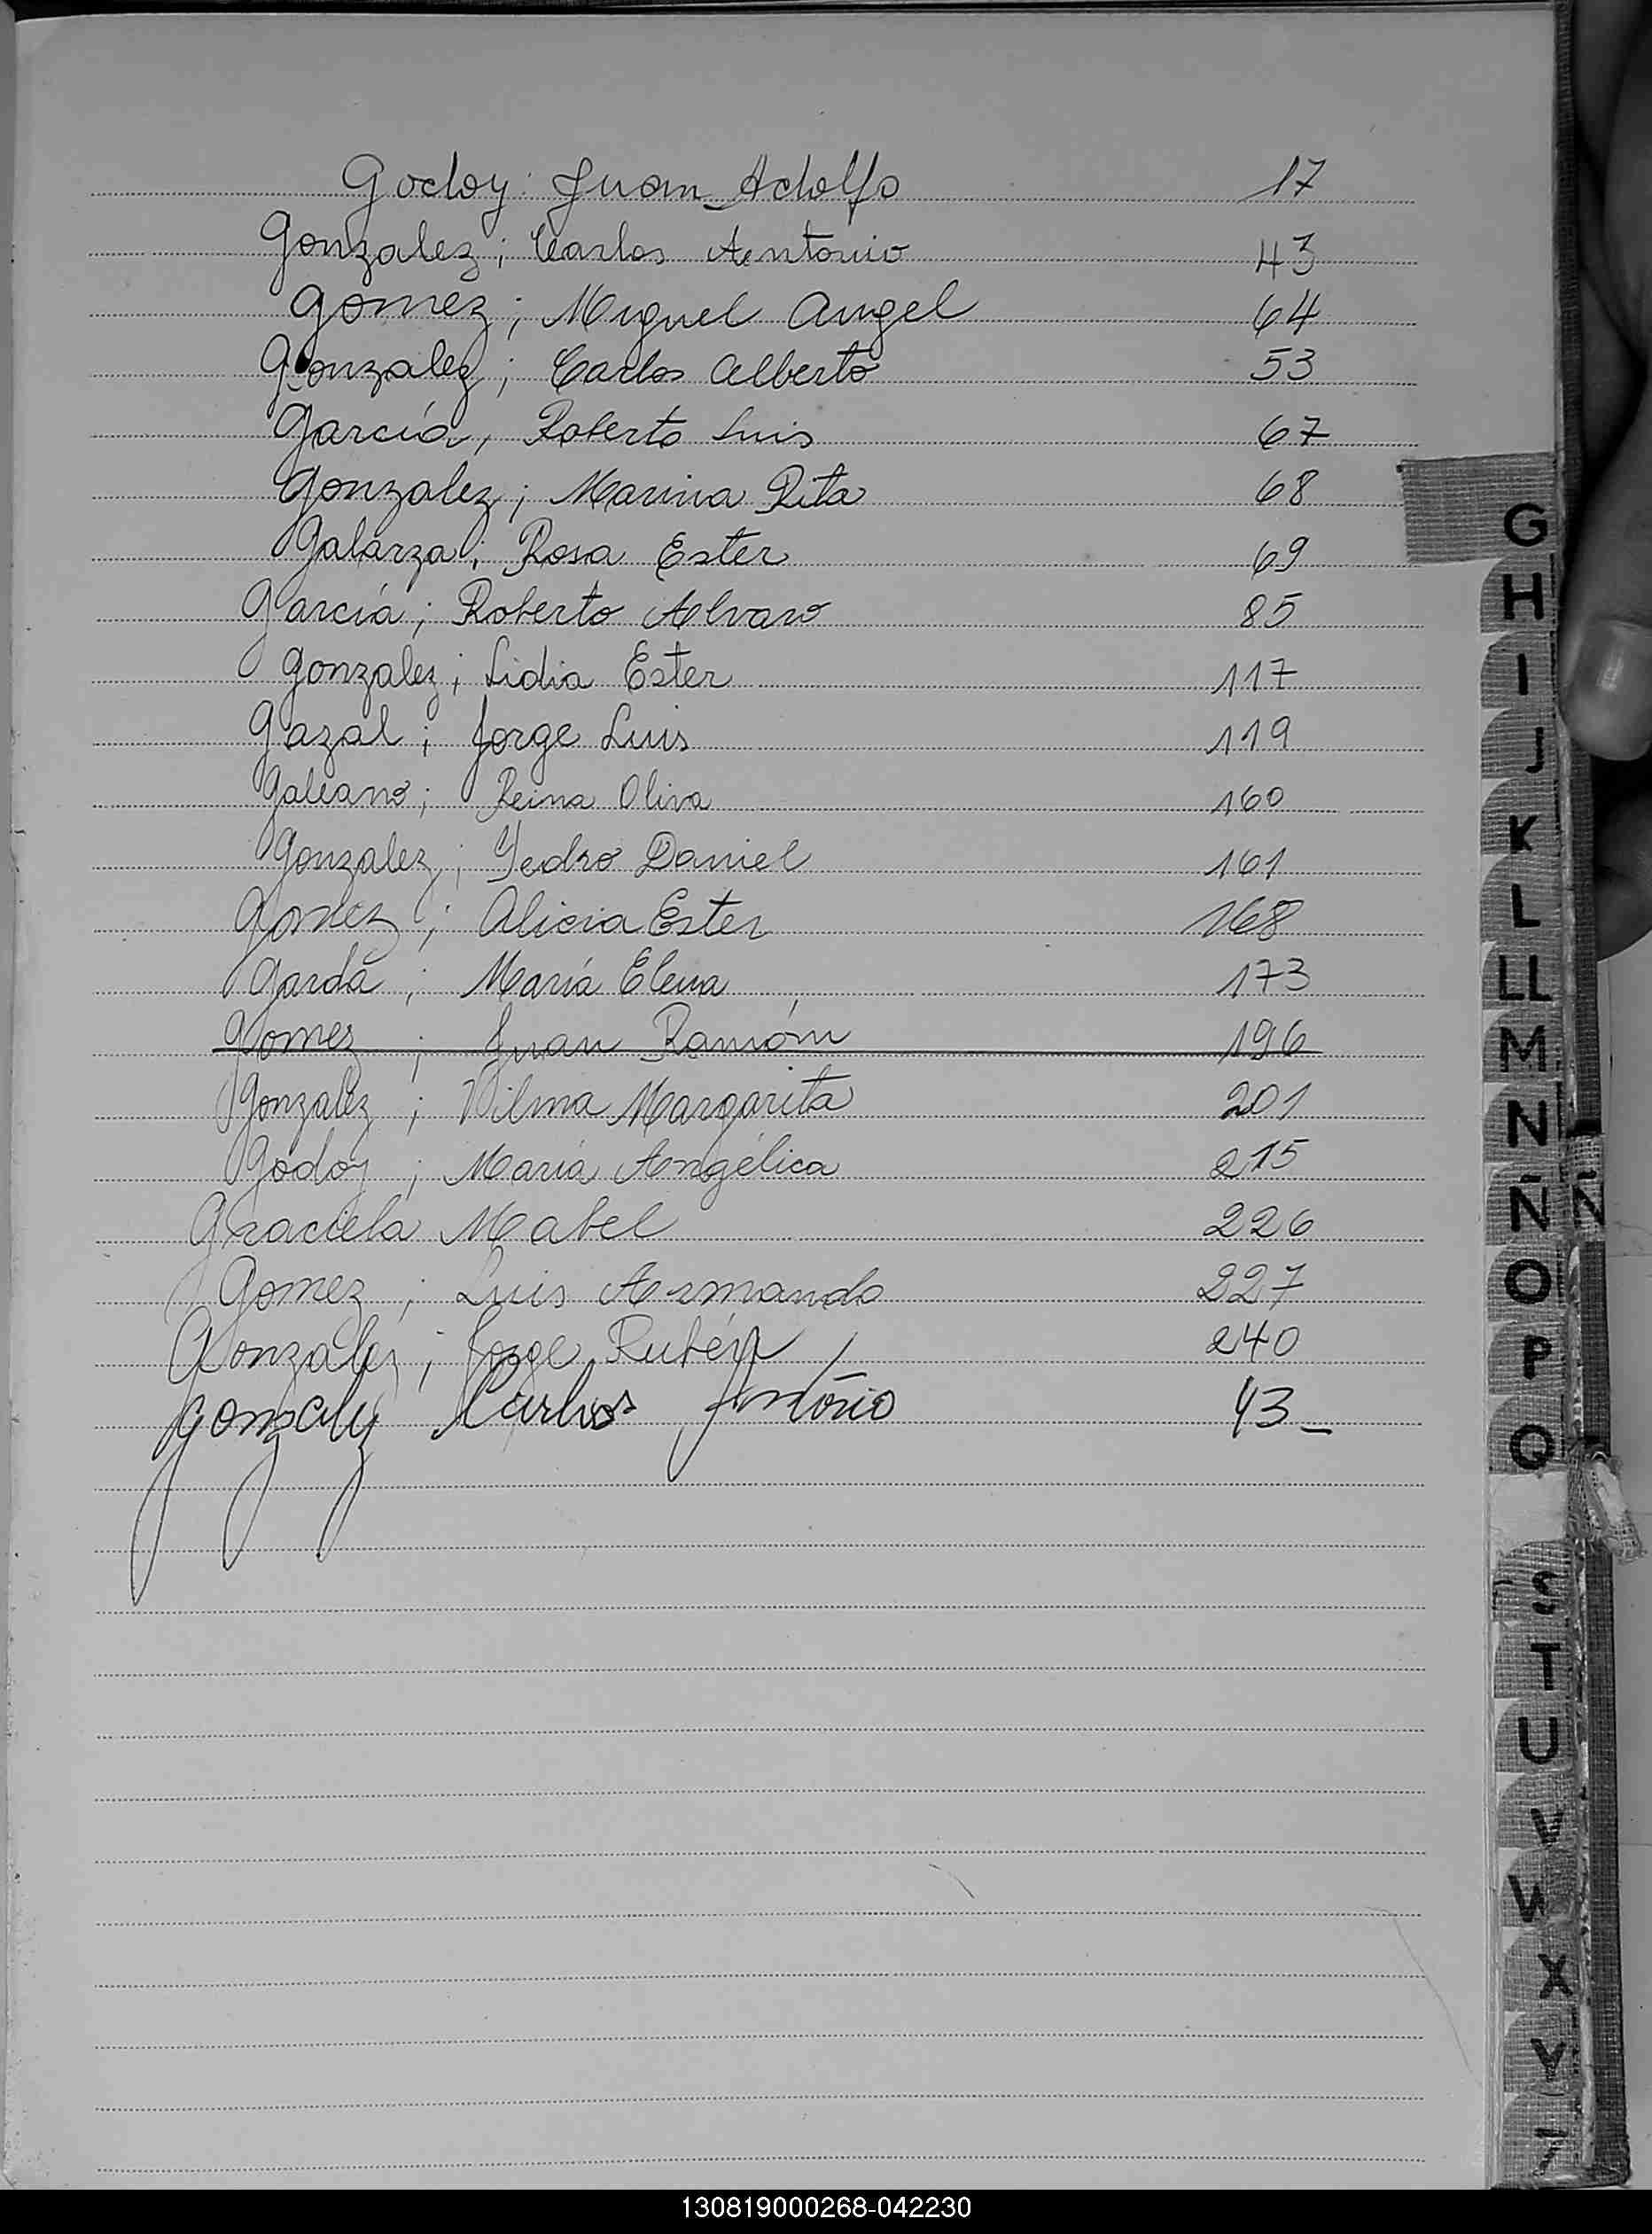 Godoy: Juan Adolfo 17
Gonzalez; Carlos Antonio 43
Gomez; Miguel Angel 64
Gonzalez; Carlos Alberto 53
García, Roberto Luis 67
Gonzalez; Marina Rita 68
Galarza; Rosa Ester 69
García; Roberto Alvaro 85
Gonzalez; Lidia Ester 117
Gazal; Jorge Luis 119
Galeano; Reina Oliva 160
Gonzalez; Pedro Daniel 161
Gomez; Alicia Ester 168
Garda; María Elena 173
Gomez; Juan Ramón 196
Gonzalez; Vilma Margarita 201
Godoy; María Angélica 215
Graciela Mabel 226
Gomez; Luis Armando 227
Gonzalez; Jorge Rubén 240
Gonzalez Carlos Antonio 43_
G
H
I
J
K
L
LL
M
N
Ñ
Ñ
O
P
Q
S
T
U
V
W
X
Y
130819000268-042230